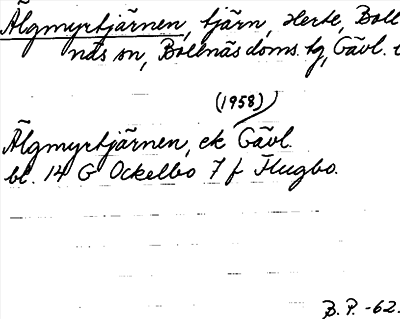 Älgmyrtjärnen, tjärn, Herte, Boll
näs sn, Bollnäs doms. tg, Gävl. l
(1958)
Älgmyrtjärnen, ek Gävl.
bl. 14 G Ockelbo 7 f Flugbo.
B. P. -62.